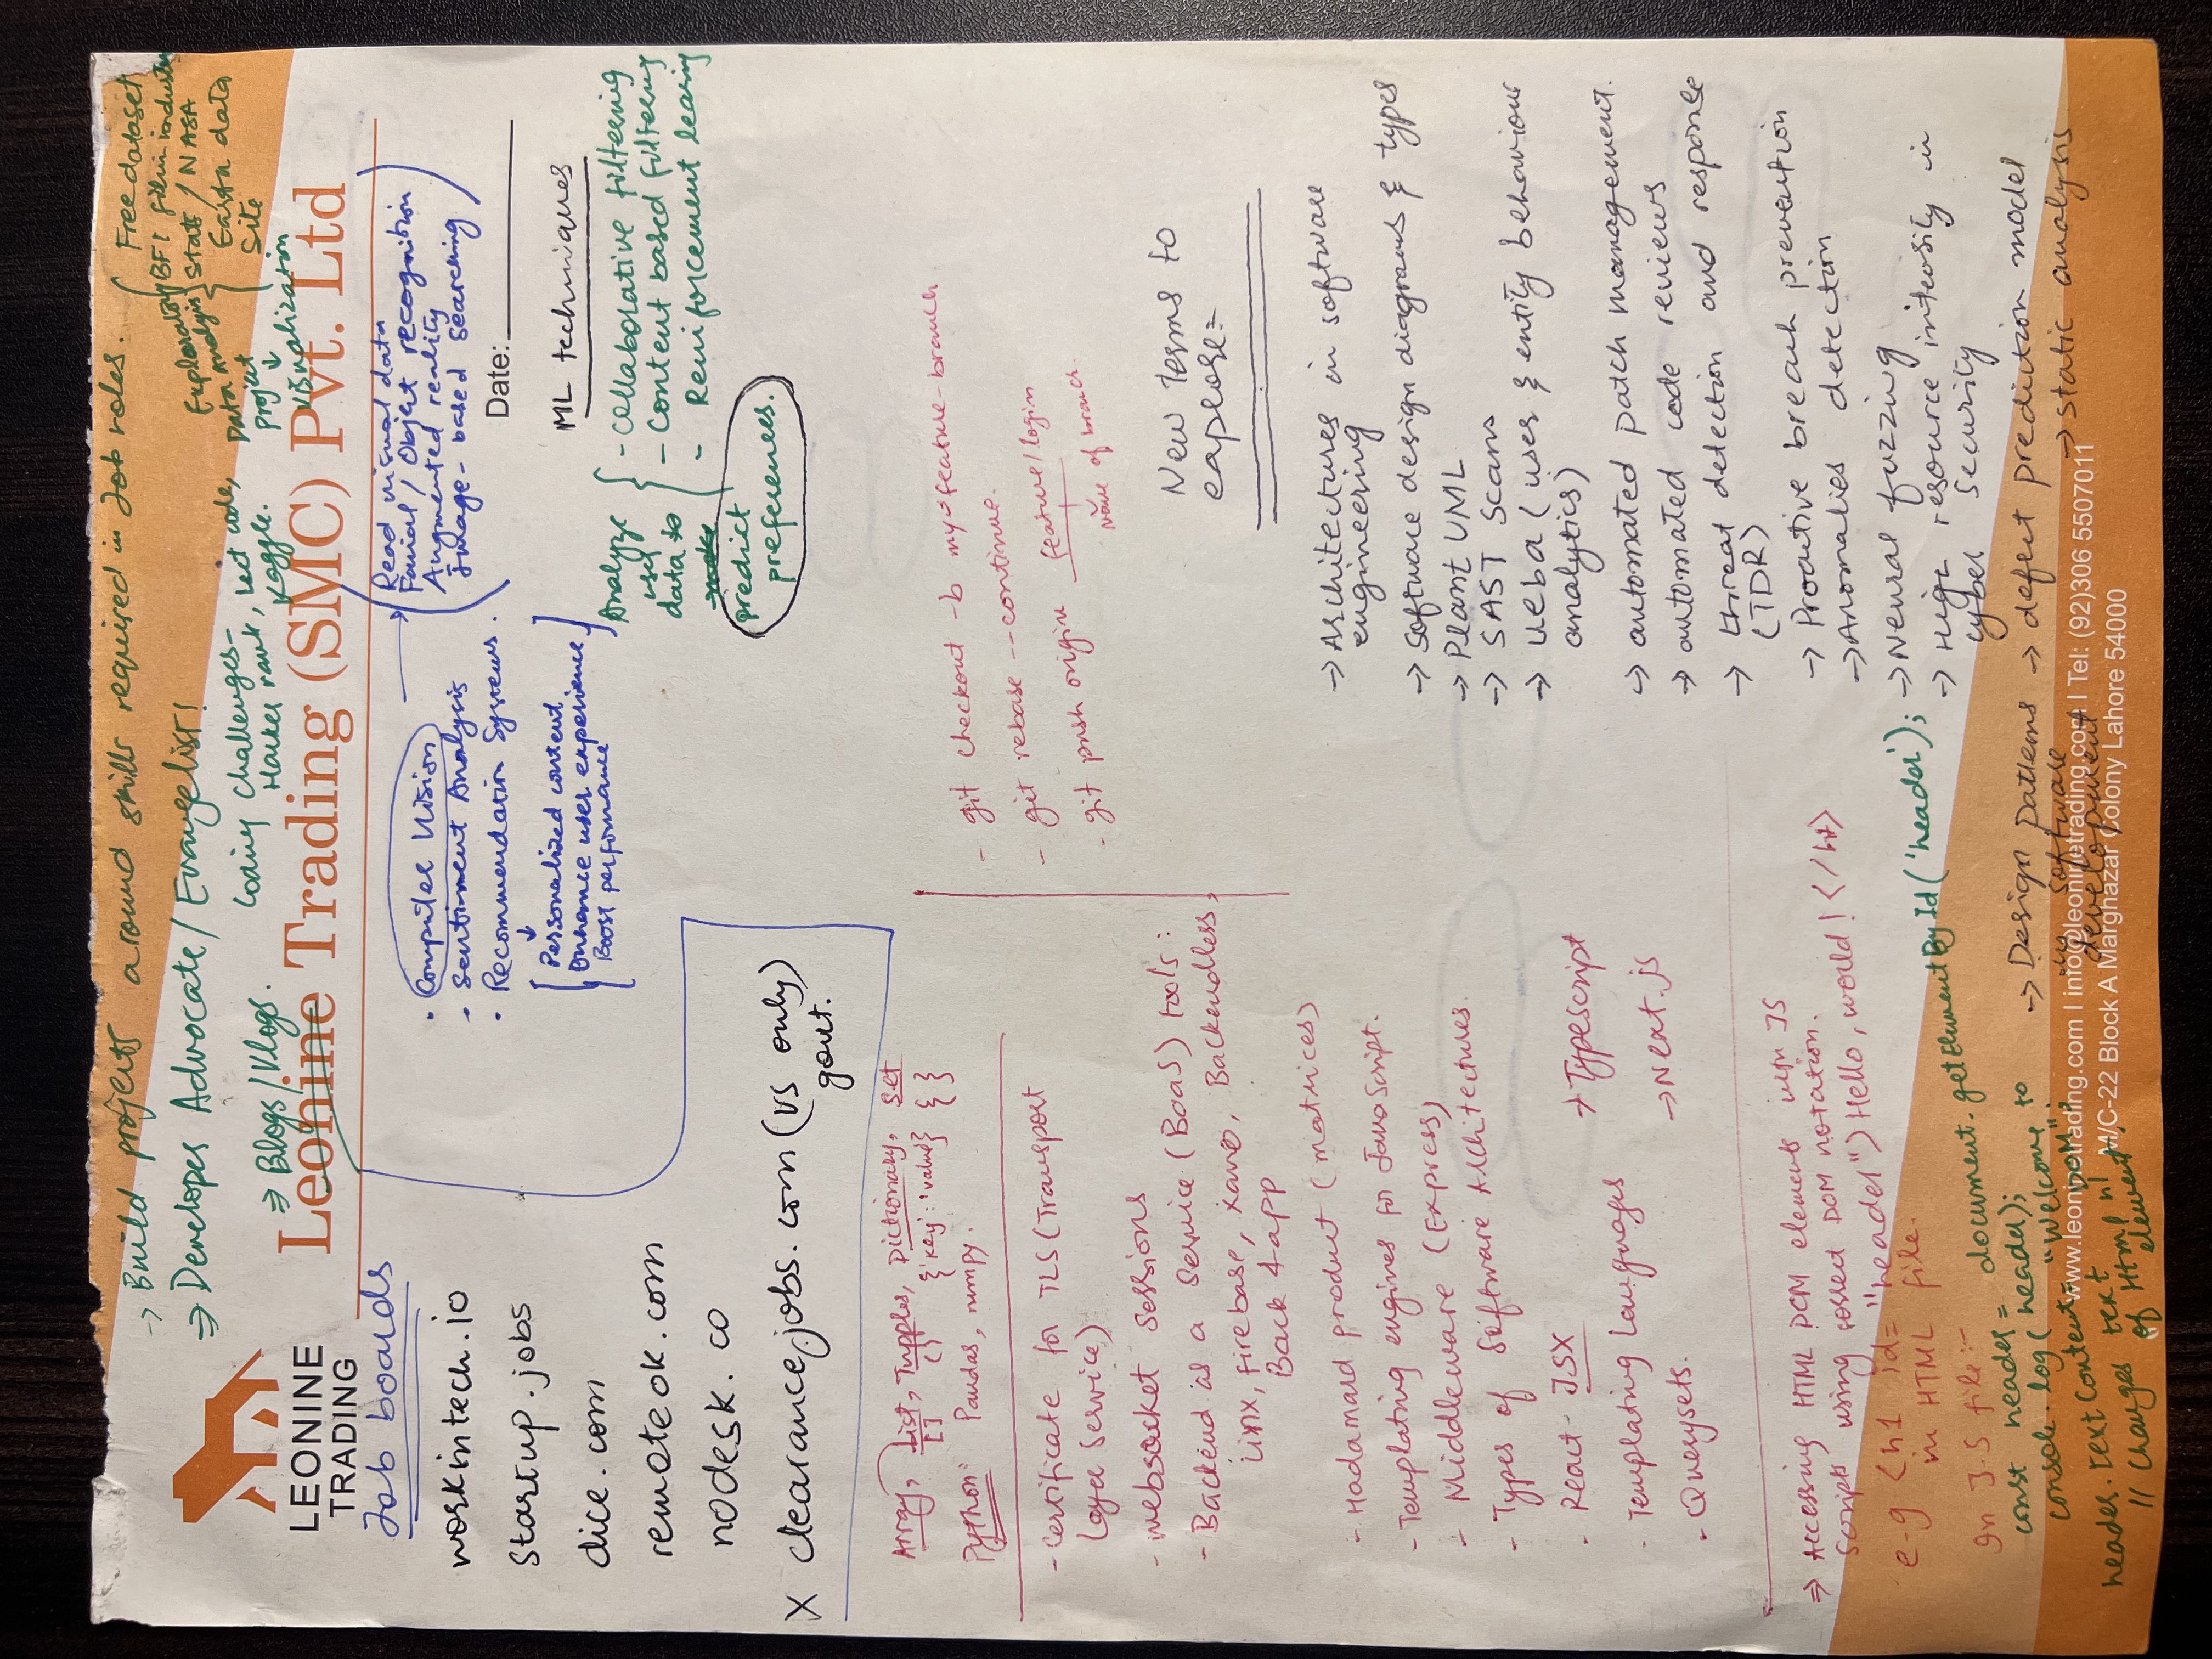 → Build projects around skills required in Job roles.
⇒ Developer Advocate / Evangelist!
⇒ Blogs/Vlogs.
Coding challenges-
Hacker rank, Leet code,
Kaggle.
Exploratory
Data analysis
project
↓
visualization
Free dataset
BFI film industry
State / NASA
Earth data
Site
LEONINE
TRADING
Leonine Trading (SMC) Pvt. Ltd
Date:
Job boards
workintech.io
startup.jobs
dice.com
remoteok.com
nodesk.co
X clearancejobs.com (US only)
gout.
· Computer Vision →
Read visual data
Facial / Object recognition
Augmented reality
image-based searching
- Sentiment Analysis
· Recommendation Systems.
↓
Personalized content
Enhance user experience
Boost performance
Analyze
user
data to
predict
preferences.
ML techniques
- Collaborative filtering
- Content based filtering
- Reniforcement learing
Array, List, Tupples, Dictionary, Set
[] () {'key':'value'} { }
Python: Pandas, numpy.
- Certificate for TLS (Transport
layer service)
- websocket sessions
- Backend as a Service (BaaS) tools:
Linx, Firebase, Xano, Backendless,
Back 4 app
- Hadamard product (matrices)
- Templating engines for JavaScript.
- Middleware (Express)
- Types of Software Architectures.
- React - JSX
- Templating languages
- Querysets.
→ Typescript
→ Next.js
- git checkout -b my-feature-branch.
- git rebase --continue.
- git push origin feature/login
name of branch
New terms to
explore:-
→ Architectures in software
engineering
→ Software design diagrams & types
→ Plant UML
→ SAST Scans
→ ueba (user & entity behaviour
analytics)
→ automated patch management.
→ automated code reviews
→ threat detection and response
(TDR)
→ Proactive breach prevention
→ Anomalies detection
→ Neural fuzzing
→ High resource intensity in
cyber security
→ Design patterns
in software
development
→ defect prediction model
→ static analysis
⇒ Accessing HTML DOM elements with JS
Scripts using correct DOM notation.
e-g <h1 id= "header">Hello, world!</h1>
in HTML file.
In J.S file:-
const header = document.getElementById('header');
console.log(header);
header.textContent = "Welcome to DOM";
// Changes text of Html element
www.leoninetrading.com I info@leoninetrading.com I Tel: (92)306 5507011
M/C-22 Block A Marghazar Colony Lahore 54000